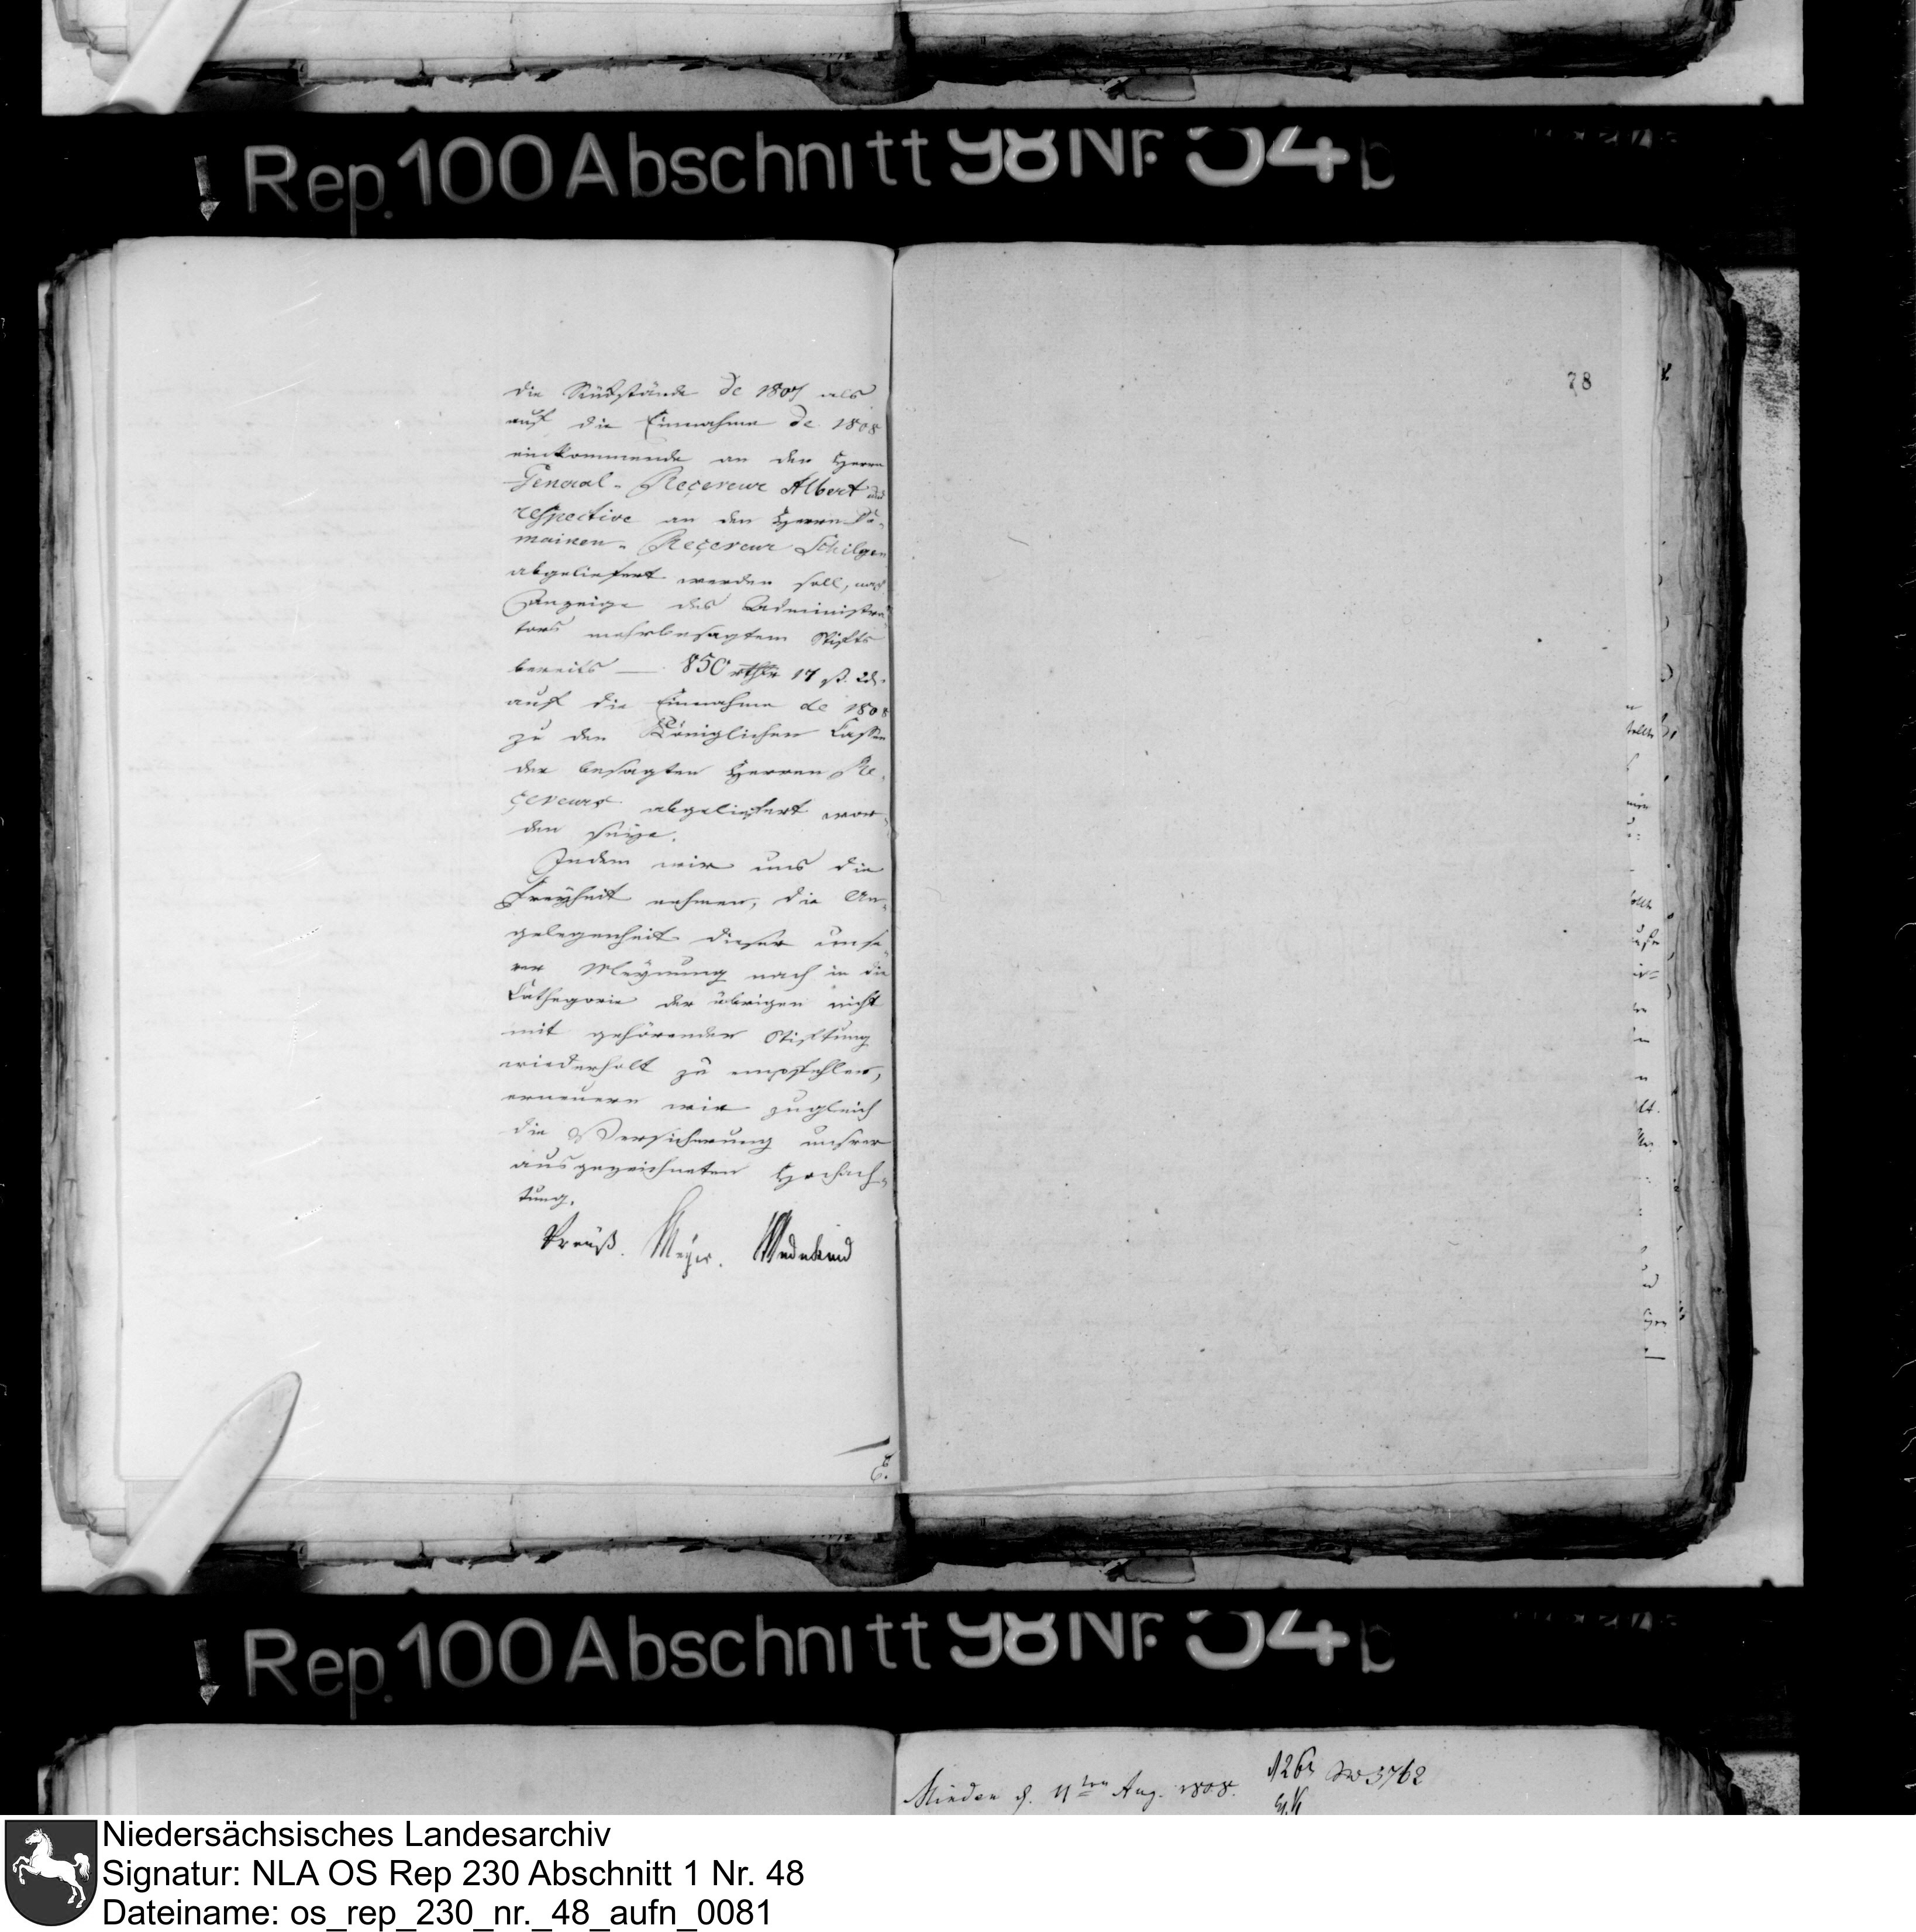 Rep. 100 Abschnitt 98 Nr. 54 b
78
die Rückstände de 1807 als
auf die Einnahme de 1808
einkommende an den Herrn
General-Reçeveur Albert und
respective an den Herrn Do-
mainen-Reçeveur Schilgen
abgeliefert werden soll, nach
Anzeige des Administra
tors mehrbesagtem Stifts
bereits — 850 rthlr 17 ß. 2 d.
auf die Einnahme de 1808
zu den Königlichen Cassen
der besagten Herren Re-
çeveurs abgeliefert wor-
den seye.
Indem wir uns die
Freyheit nehmen, die An-
gelegenheit dieser unse
rer Meynung nach in die
Cathegorie der übrigen nicht
mit gehörender Stiftung
wiederholt zu empfehlen,
erneuern wir zugleich
die Versicherung unsrer
ausgezeichneten Hochach-
tung.
Preuß. Meyer. Wedekind
Rep. 100 Abschnitt 98 Nr. 54 b
Minden d. 11ten Aug. 1808.
Niedersächsisches Landesarchiv
Signatur: NLA OS Rep 230 Abschnitt 1 Nr. 48
Dateiname: os_rep_230_nr._48_aufn_0081